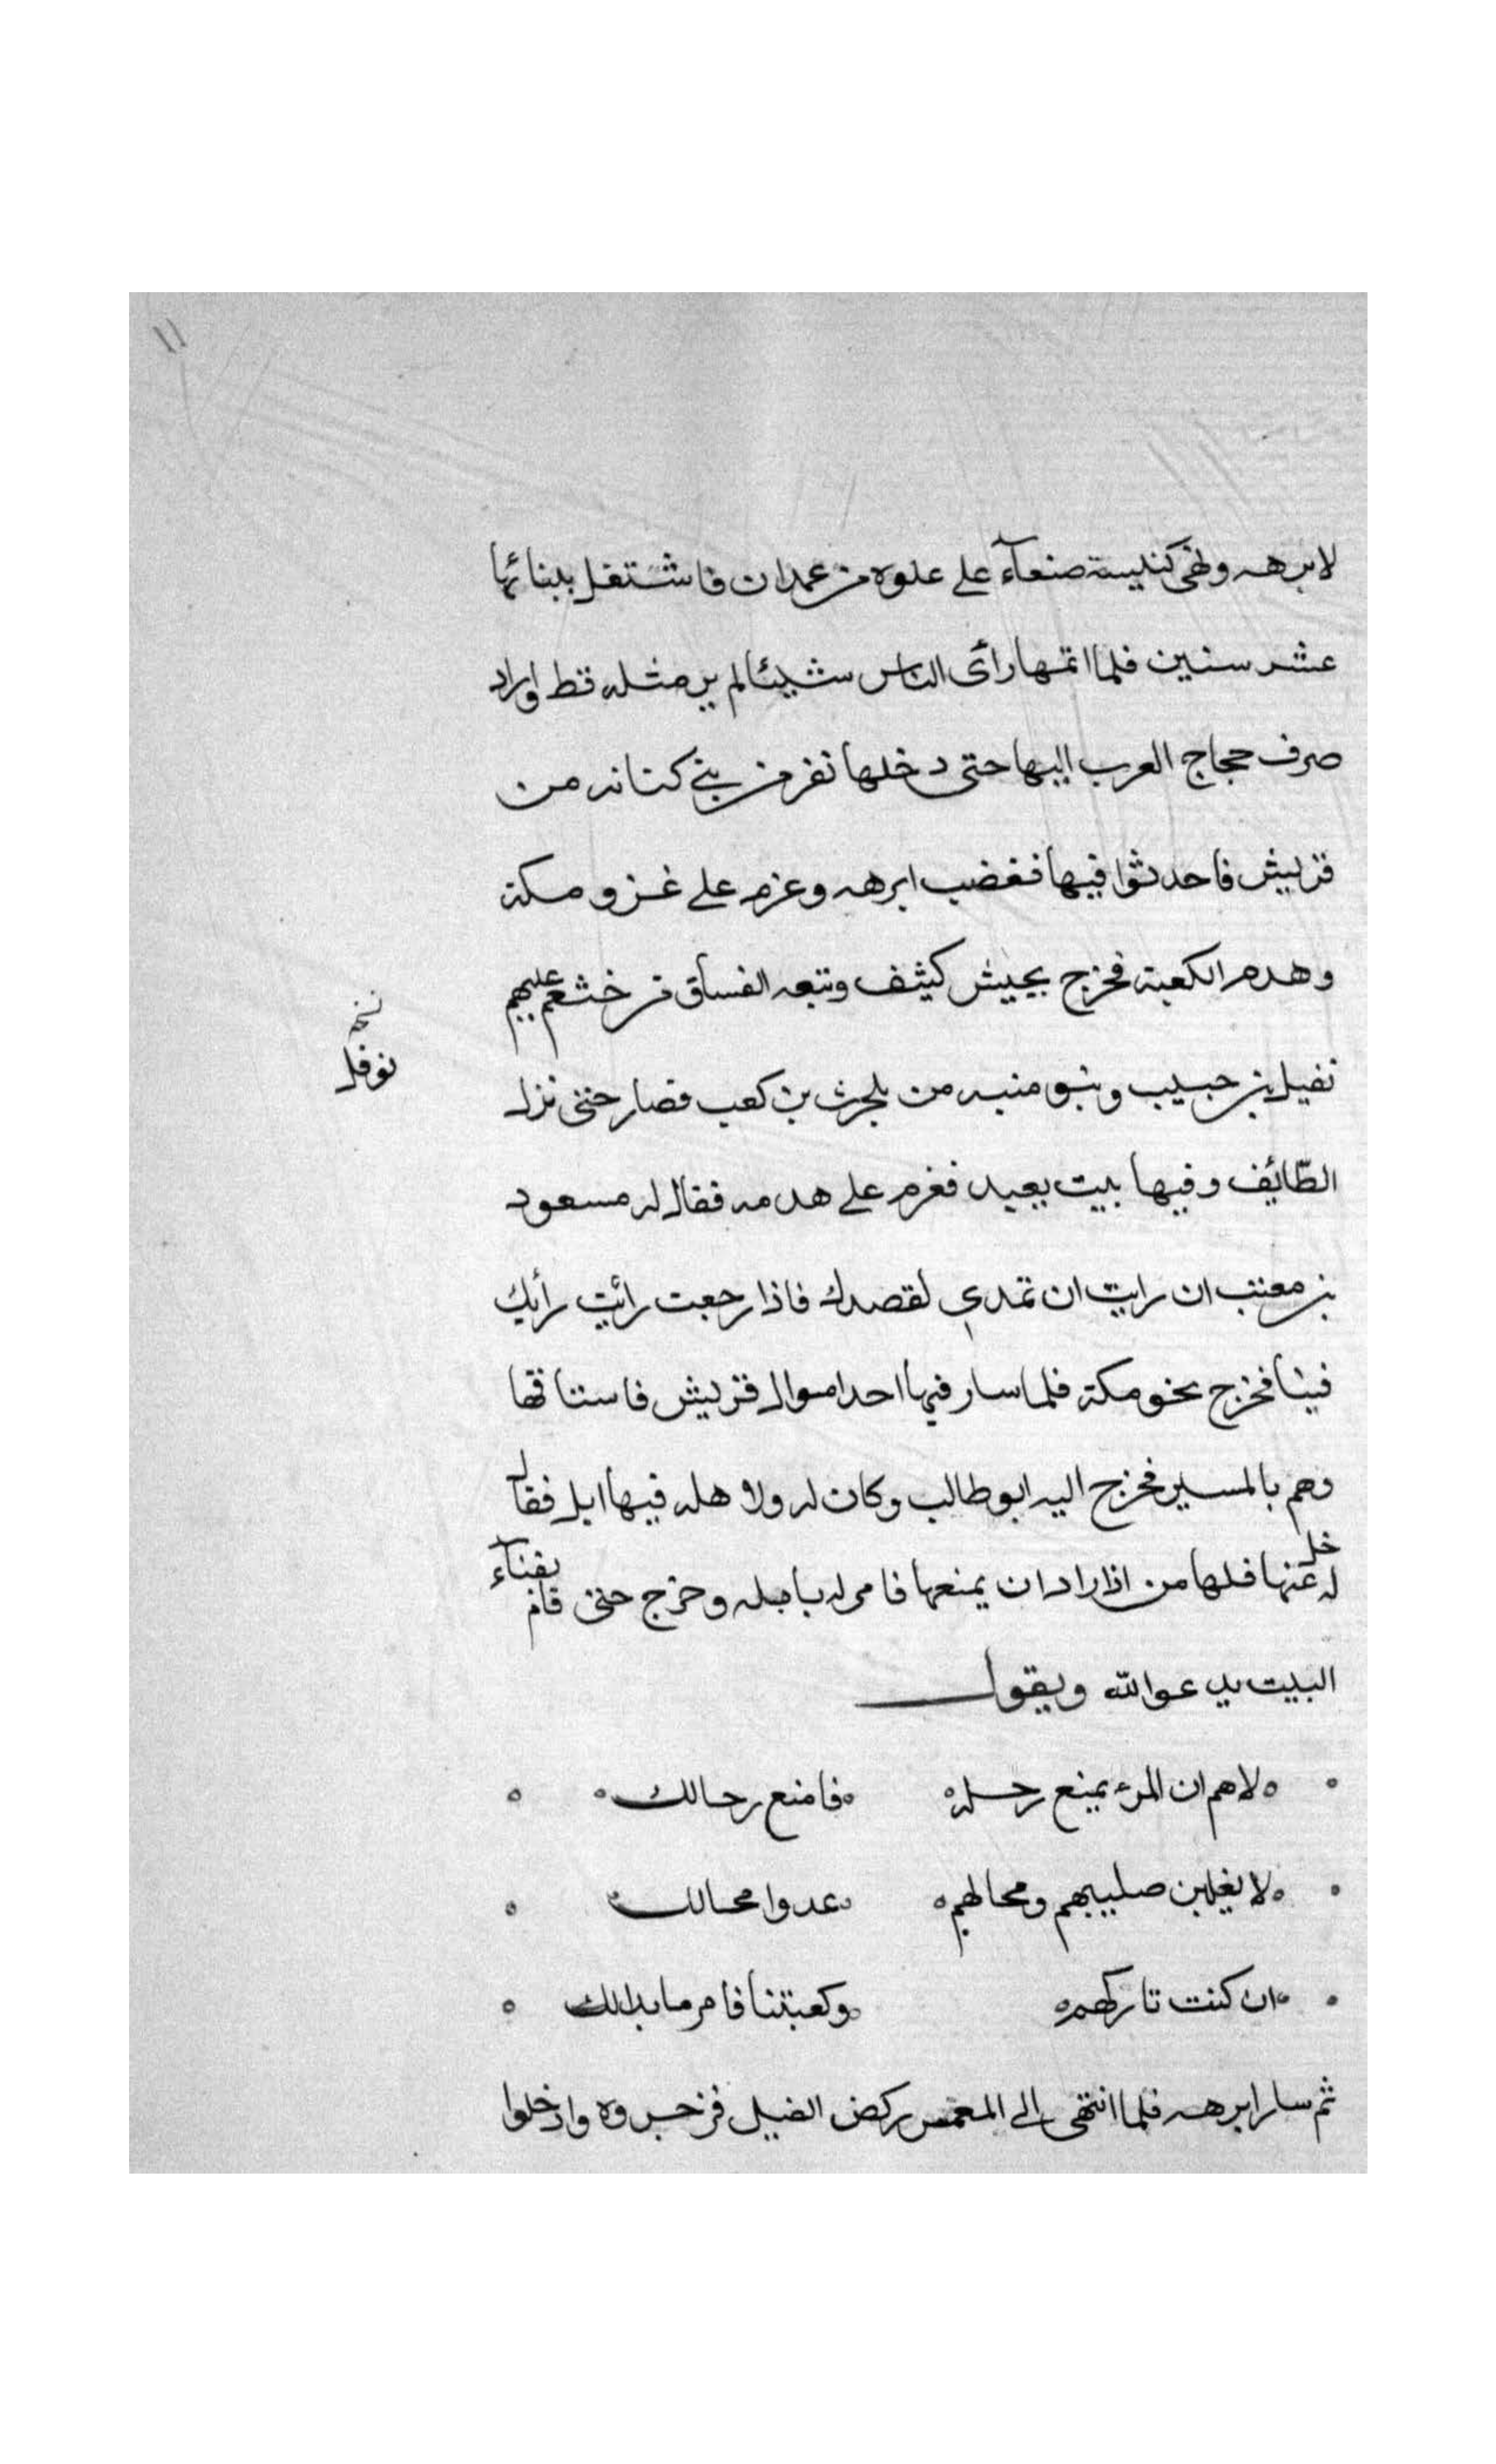 ١١
لابرهه وهي كنيسة صنعآء على علوه من عمدان فاشتغل ببنائها
عشر سنين فلما اتمها رأى الناس شيئا لم ير مثله قط واراد
صرف حجاج العرب اليها حتى دخلها نفر من بني كنانه من
قريش فاحدثوا فيها فغضب ابرهه وعزم على غزو مكة
وهدم الكعبة فخرج بجيش كثيف وتبعه الفساق من خثعم عليهم
نسخه
نوفل
نفيل بن حبيب وبنو منبه من بلحرث بن كعب فصار حتى نزل
الطّائف وفيها بيت يعبد فعزم على هدمه فقال له مسعود
بن معتب ان رايت ان تمدي لقصدك فاذا رجعت رائت رأيك
فينا فخرج نحو مكة فلما سار فيها احد اموال قريش فاستاقها
وهم بالمسير فخرج اليه ابو طالب وكان له ولاهله فيها ابل فقال
له خل عنها فلها من اذا اراد ان يمنعها فامر له بابله وخرج حتى قام بفنآء
البيت يدعو الله ويقول
لاهم ان المرء يمنع رحله فامنع رحالك
لا يغلبن صليبهم ومحالهم عدوا محالك
ان كنت تاركهم وكعبتنا فامر ما بدالك
ثم سار ابرهه فلما انتهى الى المغمس ركض الفيل فزجروه وادخلوا